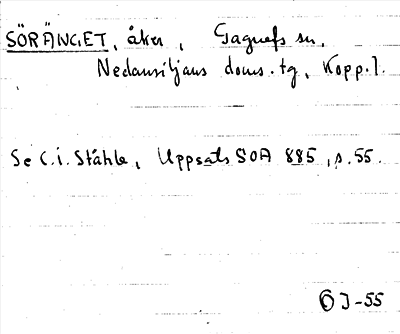 SÖRÄNGET, åker, Gagnefs sn,
Nedansiljans doms. tg, Kopp. l.
Se C.i. Ståhle, Uppsats SOA 885, s. 55.
ÖJ-55